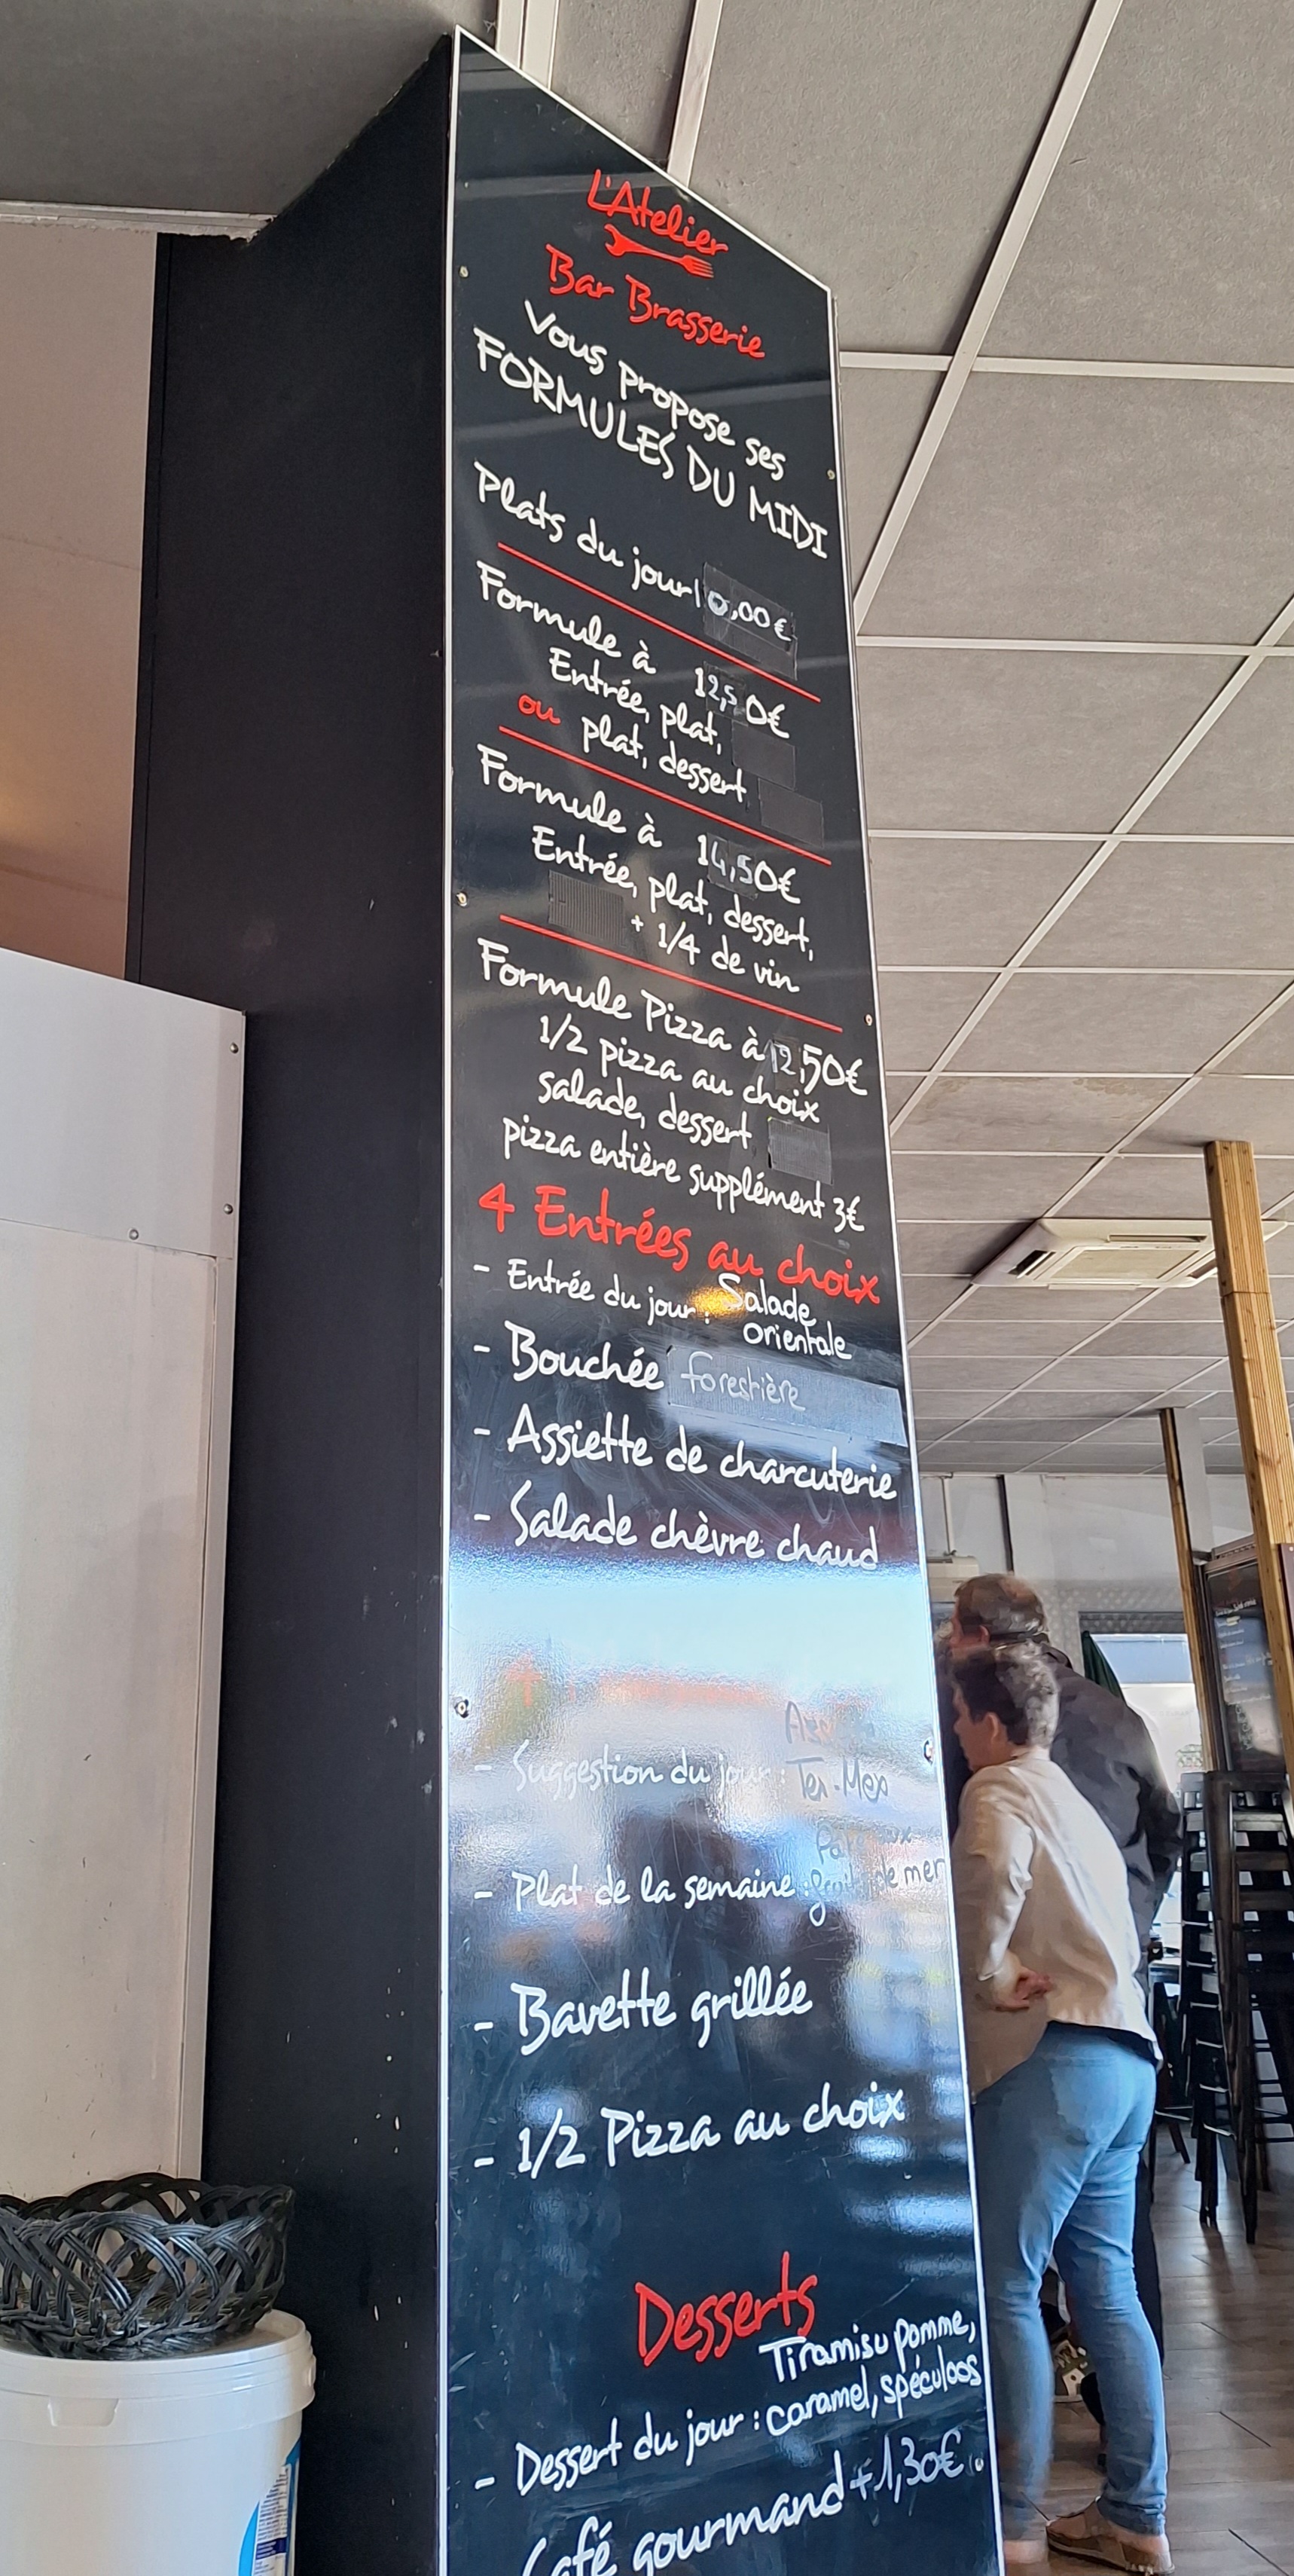 L'Atelier
Bar Brasserie
Vous propose ses
FORMULES DU MIDI
Plats du jour 10,00€
Formule à 12,50€
Entrée, plat,
ou plat, dessert
Formule à 14,50€
Entrée, plat, dessert,
+ 1/4 de vin
Formule Pizza à 12,50€
1/2 pizza au choix
salade, dessert
pizza entière supplément 3€
4 Entrées au choix
- Entrée du jour : Salade
orientale
- Bouchée forestière
- Assiette de charcuterie
- Salade chèvre chaud
- Suggestion du jour :
Tex-Mex
- Plat de la semaine : de mer
- Bavette grillée
- 1/2 Pizza au choix
Desserts
Tiramisu pomme,
- Dessert du jour : caramel, spéculoos
Café gourmand +1,30€